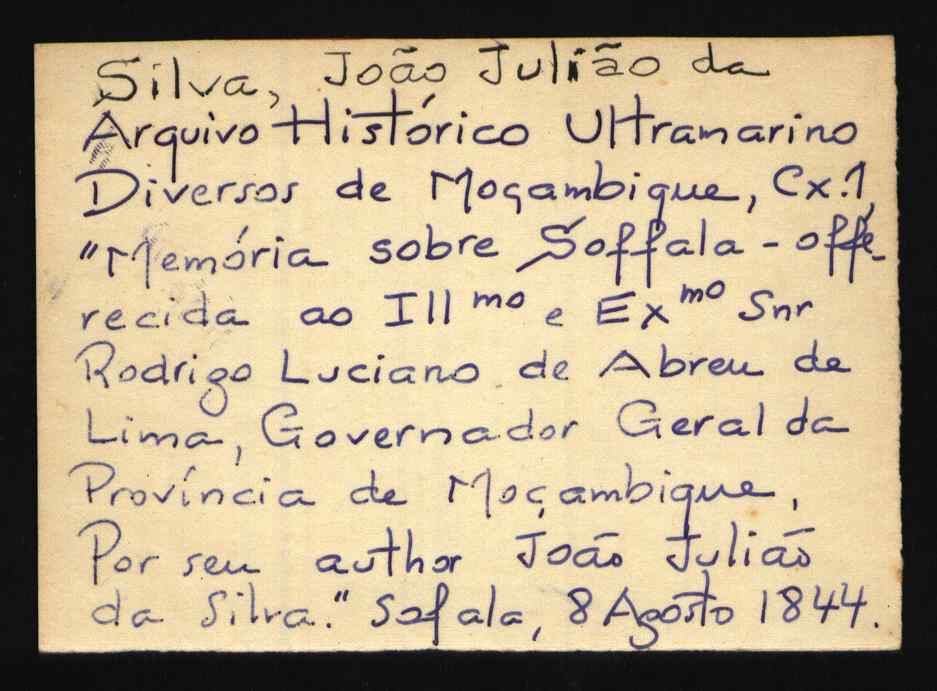 Silva, João Julião da
Arquivo Histórico Ultramarino
Diversos de Moçambique, Cx.1,
"Memória sobre Soffala - offe-
recida ao Illmo e Exmo Snr
Rodrigo Luciano de Abreu de
Lima, Governador Geral da
Província de Moçambique,
Por seu author João Julião
da Silva." Sofala, 8 Agosto 1844.